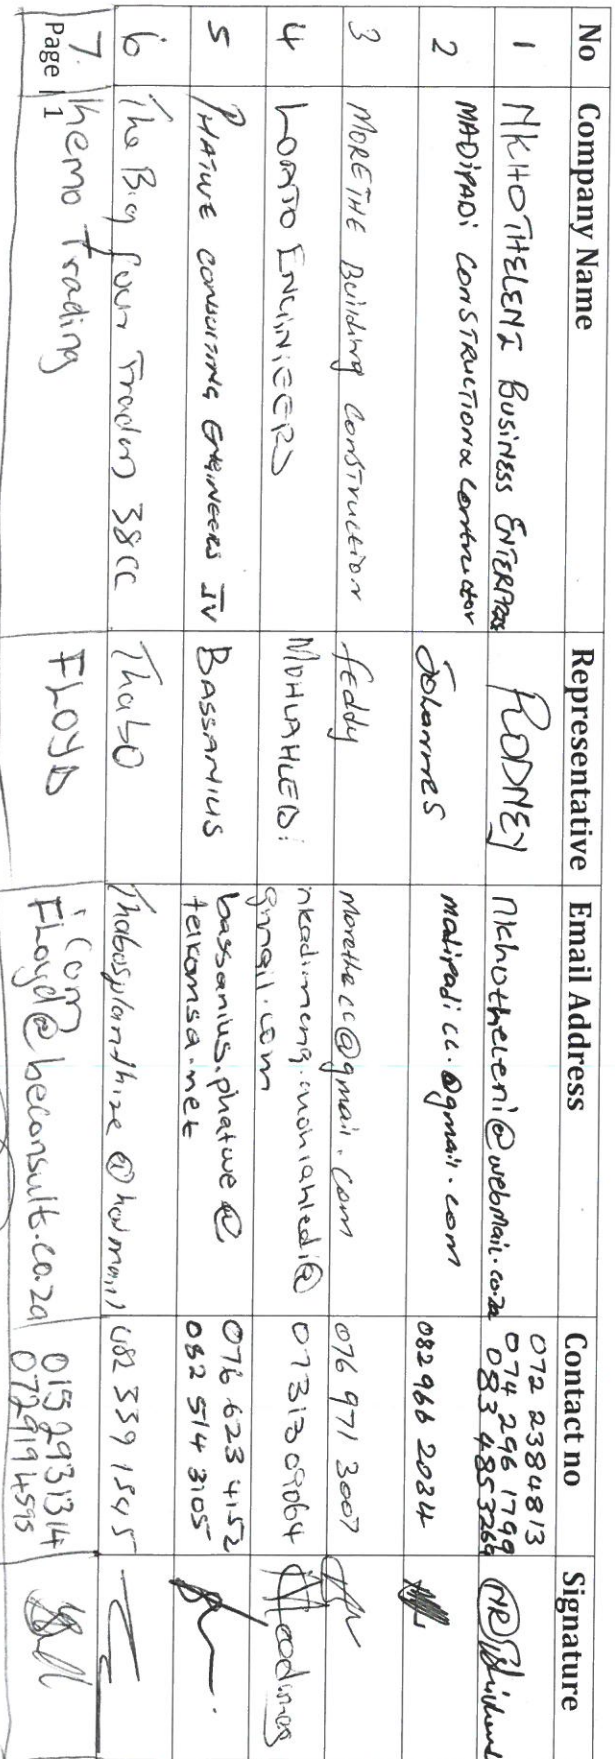 No Company Name Representative Email Address Contact no Signature
1 NKHOTHELENI BUSINESS ENTERPRISE RODNEY nkhotheleni@webmail.co.za 072 2384813
074 296 1799
083 4853269
2 MADIPADI CONSTRUCTION & Contractor Johannes madipadi cc.@gmail.com 082 966 2034
3 MORETHE Building CONSTRUCTION feddy morethecc@gmail.com 076 971 3007
4 ENGINEERS MOHLAHLEDI nkadimeng.mohlahledi@ 0731309064
gmail.com
5 PHATWE CONSULTING ENGINEERS JV BASSANIUS bassanius.phatwe@ 076 623 4152
telkomsa.net 082 514 3105
6 The Big four Trading 38CC Thabo 082 339 1545
.com
7. Khemo Trading FLOYD Floyd@beconsult.co.za 015 2931314
0729194595
Page | 1